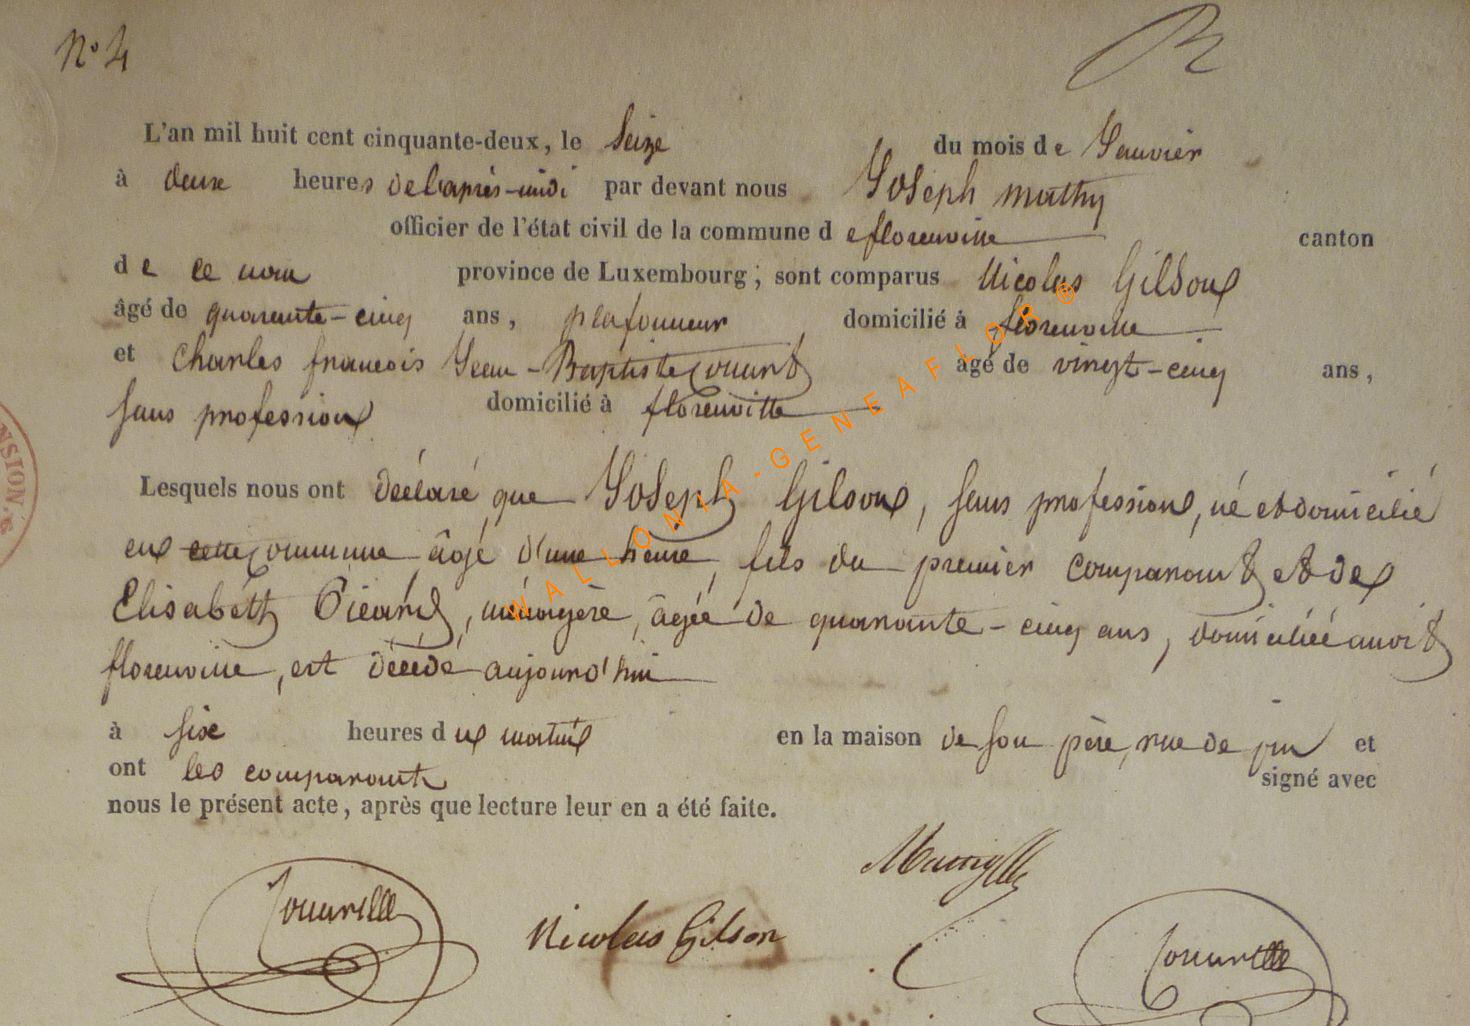 N° 4
L'an mil huit cent cinquante-deux, le Seize du mois de Janvier
à deux heures de l'après-midi par devant nous Joseph Mathy
officier de l'état civil de la commune de florenville canton
de ce nom province de Luxembourg; sont comparus Nicolas Gilson
âgé de quarante-cinq ans, plafonneur domicilié à florenville
et Charles françois Jean-Baptiste âgé de vingt-cinq ans,
sans profession domicilié à florenville
Lesquels nous ont déclaré que Joseph Gilson, sans profession, né et domicilié
en cette commune âgé d'une heure, fils du premier comparant et de
Elisabeth Picard, ménagère, âgée de quarante-cinq ans, domiciliée audit
florenville, est décédé aujourd'hui
à six heures du matin en la maison de son père, rue de et
ont les comparants signé avec
nous le présent acte, après que lecture leur en a été faite.
Nicolas Gilson
NSION.
WALLONIA-GENEAFLOR ®